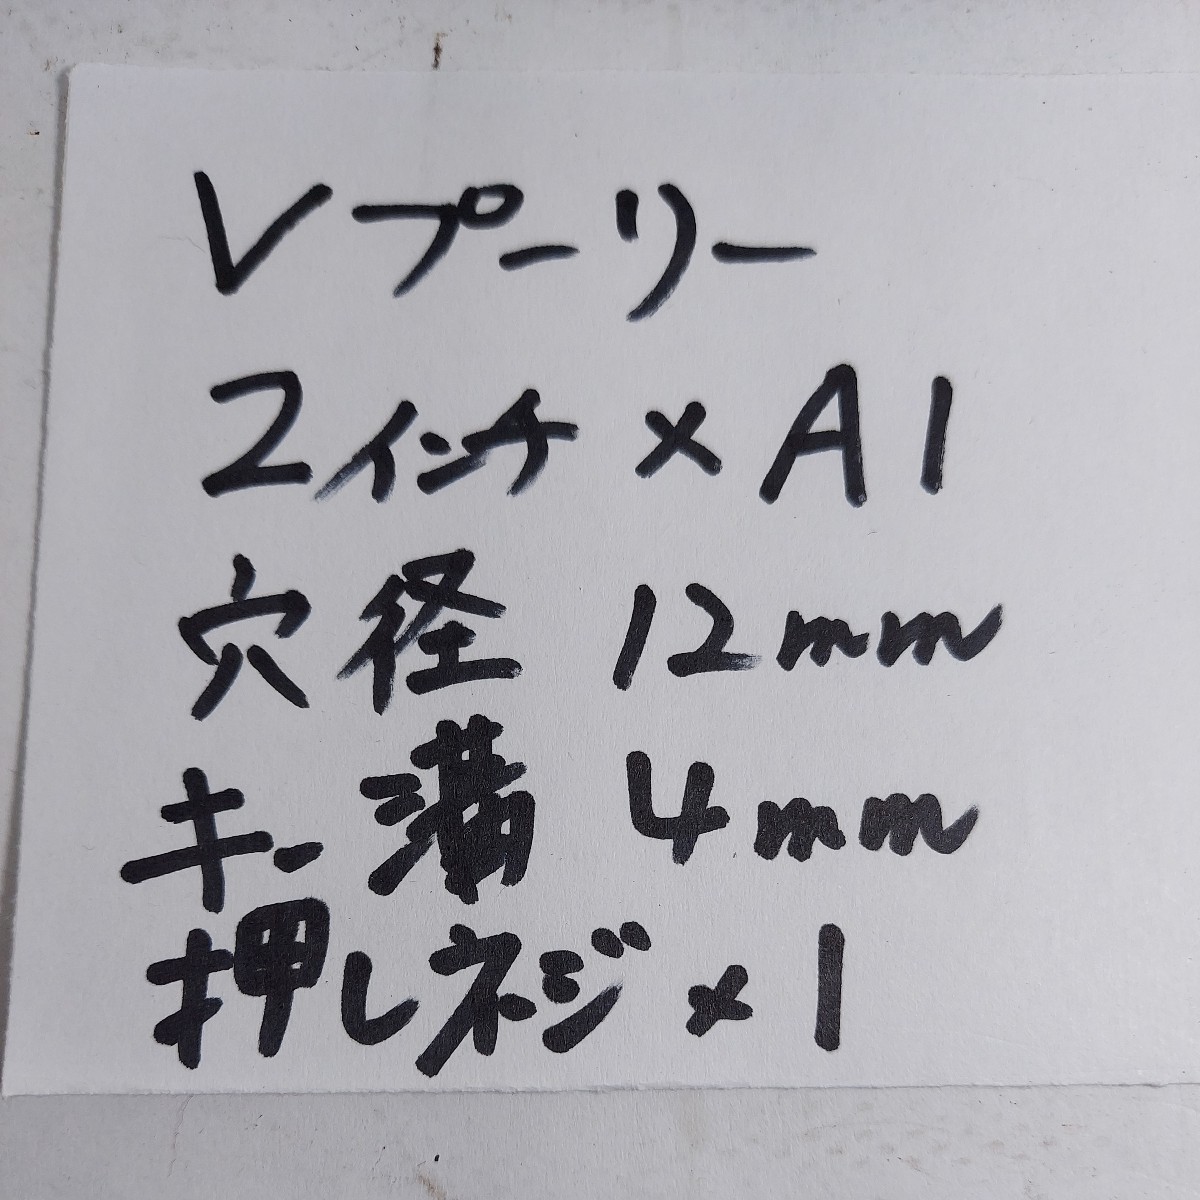 Vプーリー
2インチ×A1
穴径 12mm
キー溝 4mm
押しネジ×1